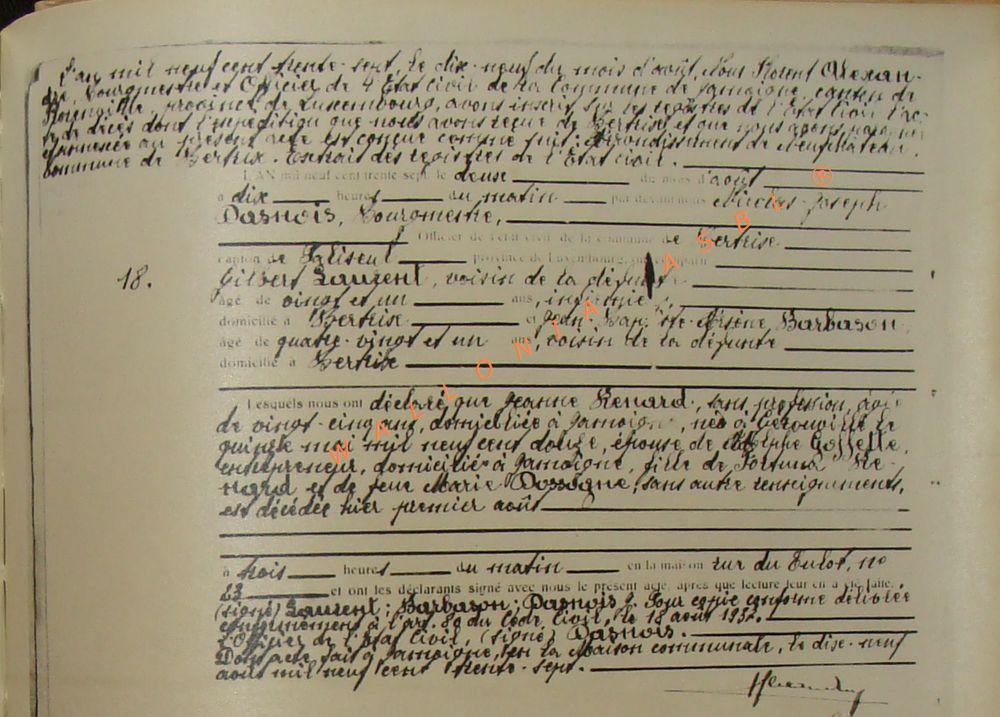 L'an mil neuf cent trente-sept, le dix-neuf du mois d'août, Nous Florent Alexan-
dre, Bourgmestre et Officier de l'Etat Civil de la Commune de Jamoigne, canton de
Florenville, province de Luxembourg, avons inscrit sur les registres de l'Etat Civil l'ac-
te de décès dont l'expédition que nous avons reçue de Bertrix et que nous avons
annexée au présent acte est conçue comme suit: Arrondissement de Neufchâteau.
commune de Bertrix. Extrait des registres de l'Etat civil.
L'AN mil neuf cent trente sept le deux du mois d'août
à dix heures du matin par devant nous Nicolas-Joseph
Dasnois, Bourgmestre,
Officier de l'état civil de la commune de Bertrix
canton de Paliseul province de Luxembourg, ont comparu
18. Gilbert Laurent, voisin de la défunte
âgé de vingt et un ans,
domicilié à Bertrix et Jean-Baptiste-Arsène Barbason
âgé de quatre-vingt et un ans, voisin de la défunte
domicilié à Bertrix
Lesquels nous ont déclaré que Jeanne Renard, sans profession, âgée
de vingt-cinq ans, domiciliée à Jamoigne, née à Gérouville le
quinze mai mil neuf cent douze, épouse de Adolphe Gosselle,
entrepreneur, domicilié à Jamoigne, fille de Fortuné Re-
nard et de feue Marie Dossogne, sans autre renseignements,
est décédée hier premier août
à trois heures du matin en la maison rue du Culot, no
23 et ont les déclarants signé avec nous le présent acte, après que lecture leur en a été faite.
(signé) Laurent; Barbason; Dasnois. Pour copie conforme délivrée
conformément à l'art. 80 du Code Civil, le 18 août 1937.
L'Officier de l'Etat Civil, (signé) Dasnois.
Dont acte fait à Jamoigne, en la Maison communale, le dix-neuf
août mil neuf cent trente-sept.
WALLONIA ASBL ®